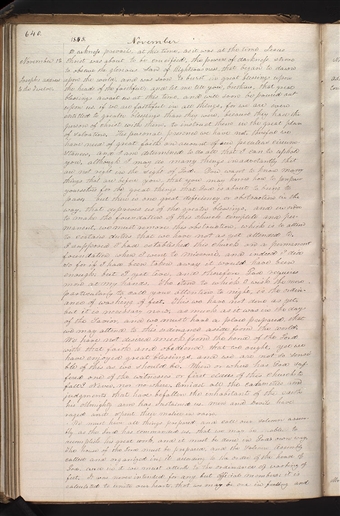 640.
1835 November
Darkness prevails, at this time as it was at the time Jesus
November 12. Christ was about to be crucified, the powers of darkness strove
to obscure the glorious Sun of Righteousness that began to dawn
Joseph's address upon the world, and was soon to burst in great blessings upon
to the Twelve the heads of the faithful, and let me tell you, brethren, that great
blessings await us at this time, and will soon be poured out
upon us if we are faithful in all things, for we are even
entitled to greater blessings than they were, because they had the
person of Christ with them, to instruct them in the great plan
of salvation. His personal presence we have not, therefore we
have need of great faith on account of our peculiar circum-
stances, and I am determined to do all that I can to uphold
you, although I may do many things inadvertently that
are not right in the sight of God. You want to know many
things that are before you, that you may know how to prepare
yourselves for the great things that God is about to bring to
pass. But there is one great deficiency or obstruction in the
way, that deprives us of the greater blessings, and in order
to make the foundation of this Church complete and per-
manent, we must remove this obstruction, which is to attend
to certain duties that we have not as yet attended to.
I supposed I had established this Church on a permanent
foundation when I went to Missouri, and indeed I did
so, for if I had been taken away it would have been
enough, but I yet live, and therefore God requires
more at my hands. The item to which I wish the more
particularly to call your attention to night, is the ordin-
ance of washing of feet. This we have not done as yet,
but it is necessary now, as much as it was in the days
of the Savior, and we must have a place prepared, that
we may attend to this ordinance aside from the world.
We have not desired much from the hand of the Lord
with that faith and obedience that we ought, yet we
have enjoyed great blessings, and we are not so sensi-
ble of this as we should be. When or where has God suf-
fered one of the witnesses or first elders of this Church to
fall? Never, nor no where. Amidst all the calamities and
judgments that have befallen the inhabitants of the earth,
his Almighty arm has sustained us, men and devils have
raged and spent their malice in vain.
We must have all things prepared, and call our solemn assem-
bly as the Lord has commanded us, that we may be able to
accomplish his great work, and it must be done in God's own way.
The house of the Lord must be prepared, and the solemn assembly
called and organized in it according to the order of the house of
God, and in it we must attend to the ordinance of washing of
feet. It was never intended for any but official members. It is
calculated to unite our hearts, that we may be one in feeling and